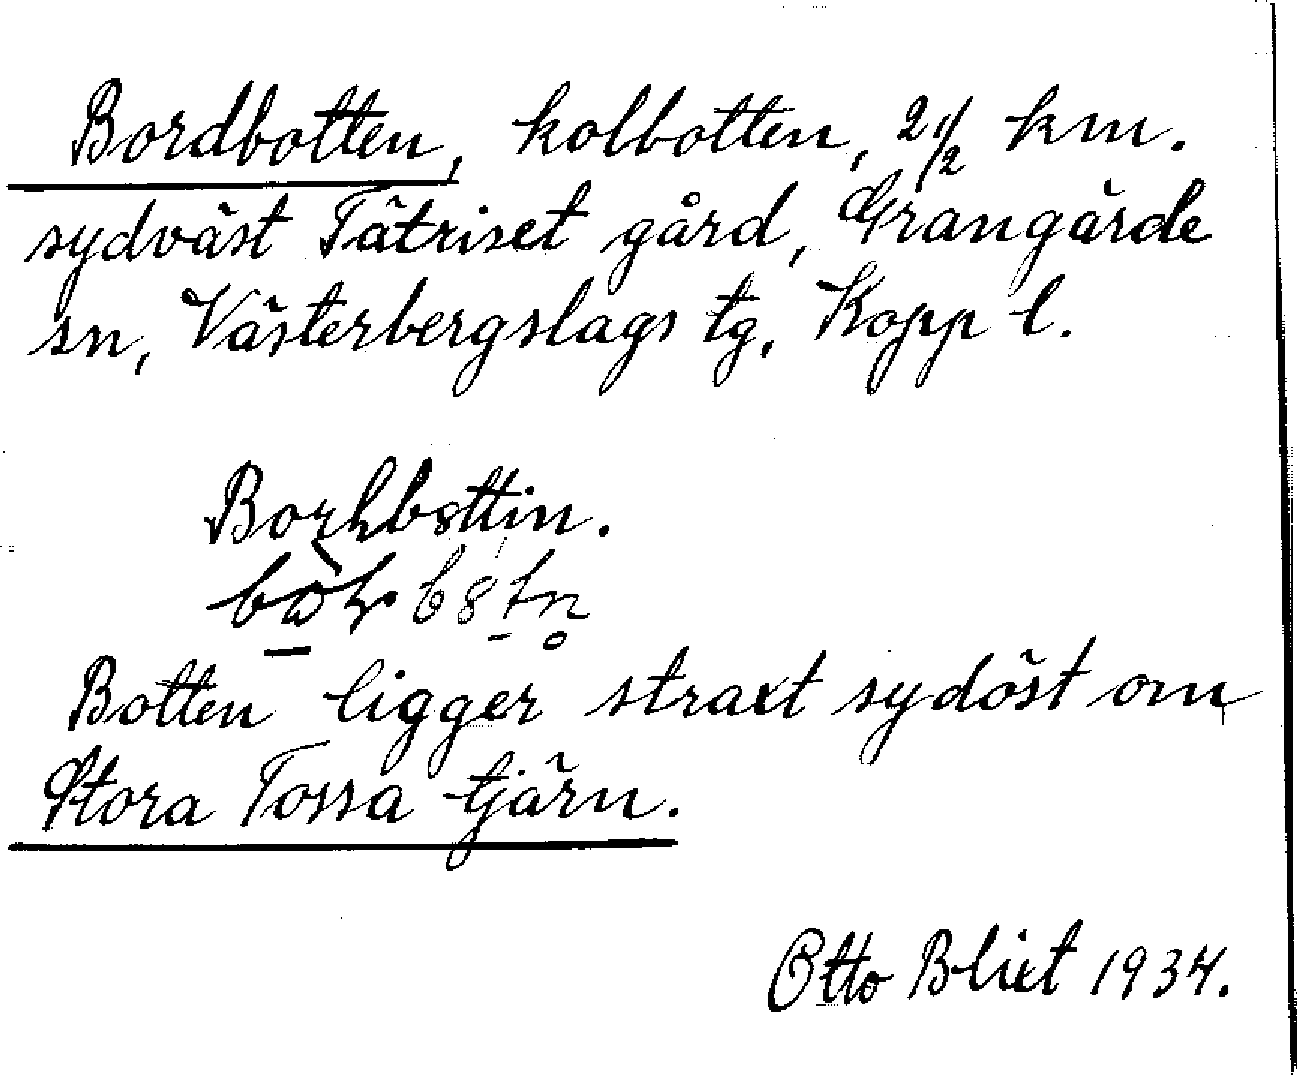 Bordbotten, kolbotten, 2 1/2 km.
sydväst Tätriset gård, Grangärde
sn, Västerbergslags tg, Kopp l.
Botten ligger straxt sydöst om
Stora Tossa tjärn.
Otto Blixt 1934.